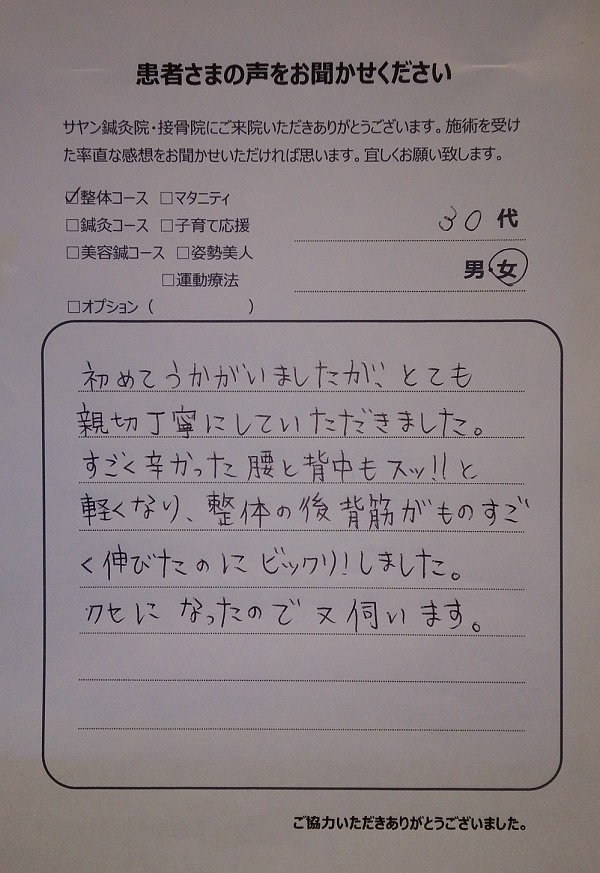 患者さまの声をお聞かせください
サヤン鍼灸院・接骨院にご来院いただきありがとうございます。施術を受け
た率直な感想をお聞かせいただければ思います。宜しくお願い致します。
☑整体コース □マタニティ
□鍼灸コース □子育て応援
30代
□美容鍼コース □姿勢美人
男・女
□運動療法
□オプション（ ）
初めてうかがいましたが、とても
親切丁寧にしていただきました。
すごく辛かった腰と背中もスッ!!と
軽くなり、整体の後背筋がものすご
く伸びたのにビックリ!しました。
クセになったので又伺います。
ご協力いただきありがとうございました。